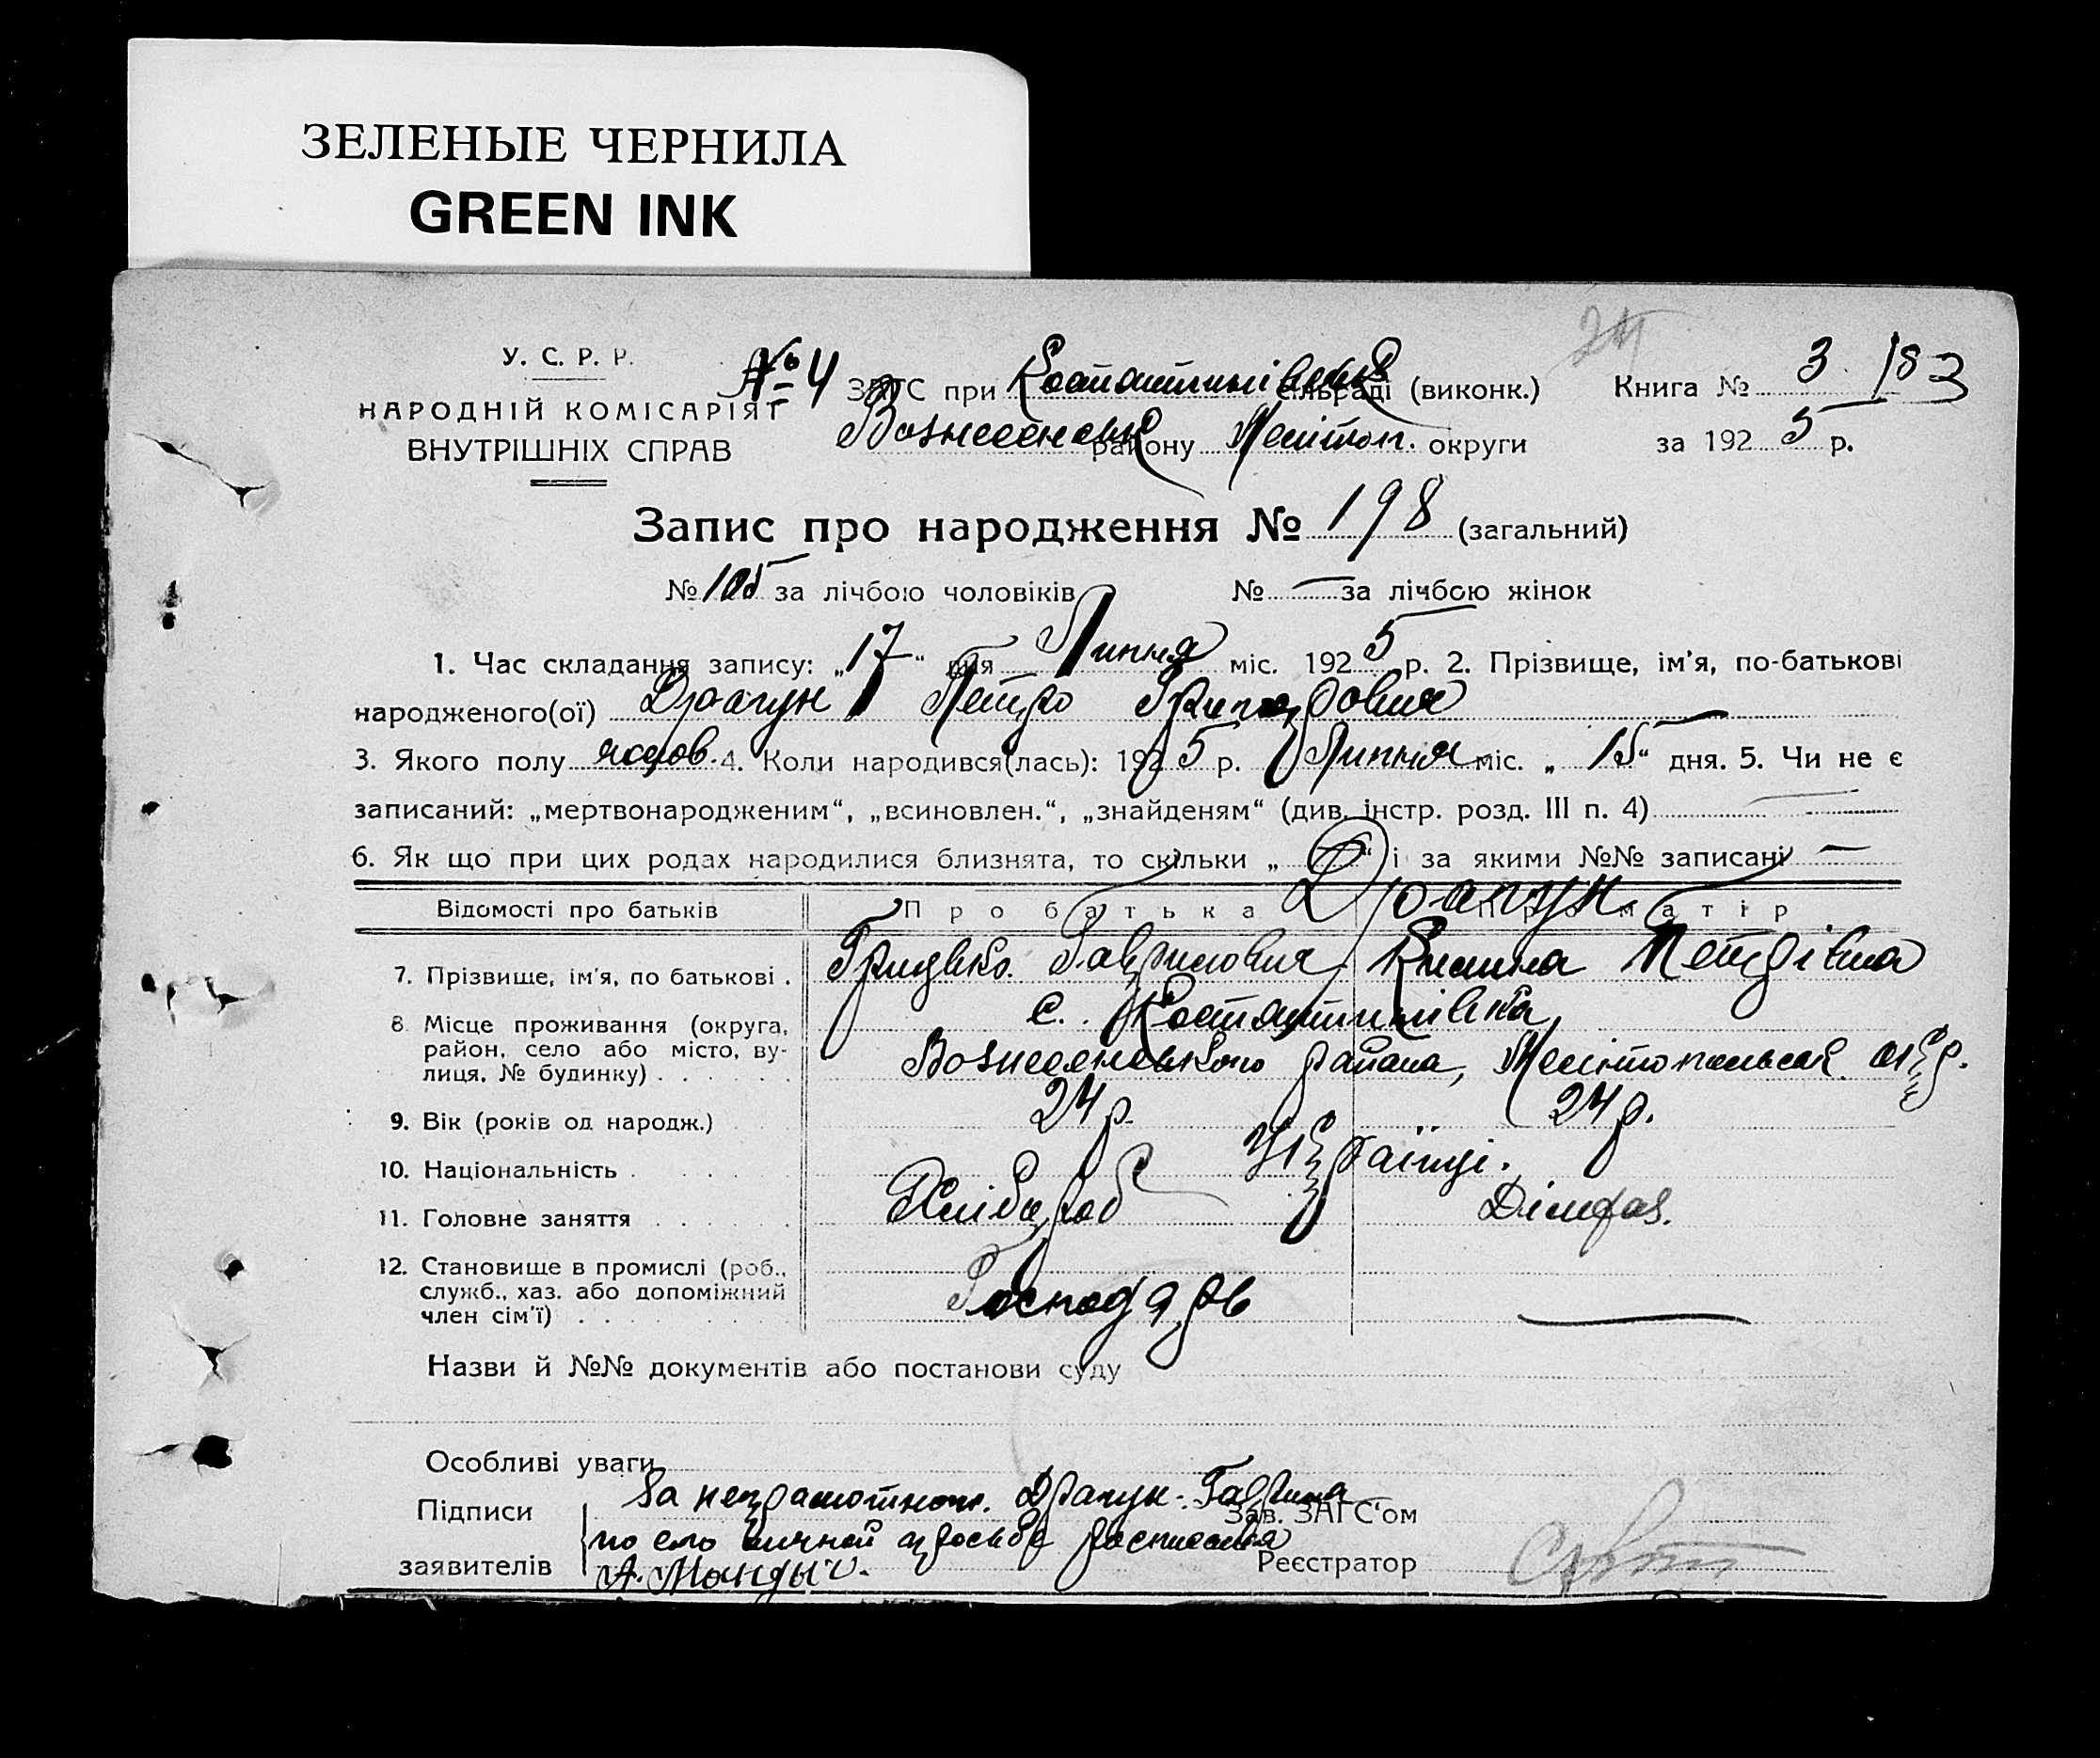 ЗЕЛЕНЫЕ ЧЕРНИЛА
GREEN INK
24
У. С. Р. Р.
НАРОДНІЙ КОМІСАРІЯТ
ВНУТРІШНІХ СПРАВ
№ 4 ЗАГС при Костантинівській сільраді (виконк.) Книга № 3 183
Вознесенськ району Мелітоп. округи за 1925 р.
Запис про народження № 198 (загальний)
№ 105 за лічбою чоловіків № — за лічбою жінок
1. Час складання запису: „17“ дня Липня міс. 1925 р. 2. Прізвище, ім'я, по-батькові
народженого(ої) Драгун Петро Григорович
3. Якого полу 4. Коли народився(лась): 1925 р. Липня міс. „15“ дня. 5. Чи не є
записаний: „мертвонародженим“, „всиновлен.“, „знайденям“ (див. інстр. розд. III п. 4) —
6. Як що при цих родах народилися близнята, то скільки „—“ і за якими №№ записані —
Відомості про батьків Про батька Драгун Про матір
7. Прізвище, ім'я, по батькові . Грицько Гаврилович Петрівна
8. Місце проживання (округа, район, село або місто, ву-лиця, № будинку) с. Костантинівка
Вознесенського району, Мелітопольської окр.
9. Вік (років од народж.) 24 р. 24 р.
10. Національність Українці.
11. Головне заняття Хлібороб Домгос.
12. Становище в промислі (роб., служб., хаз. або допоміжний член сім'ї) Господарь —
Назви й №№ документів або постанови суду
Особливі уваги
Підписи За неграмотного Драгун Гаврила Зав. ЗАГС'ом
по его личной просьбе расписался
заявителів А. Мандыч. Реєстратор